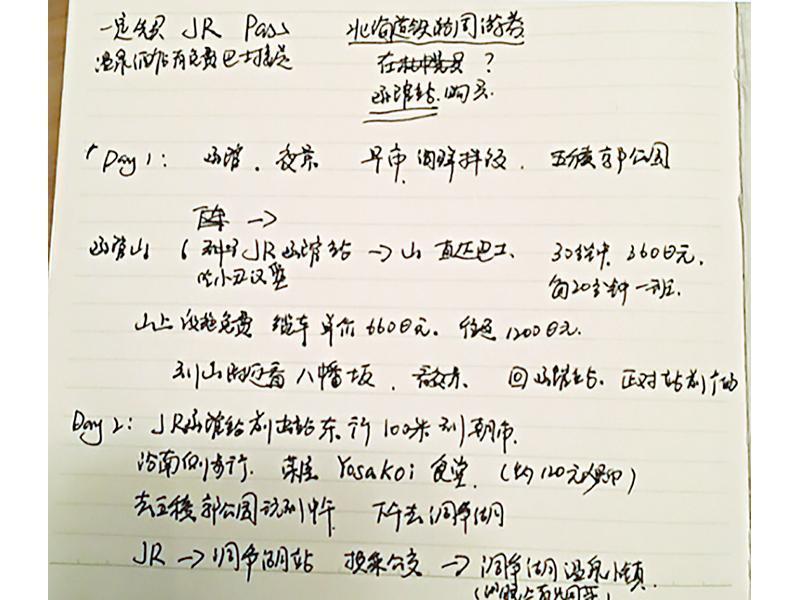 一定先买 JR Pass 北海道铁路周游券
温泉酒店有免费巴士接送 在札幌买？
函馆站购买.
Day 1： 函馆．夜景 早市 海鲜拌饭． 五稜郭公园
→
函馆山 JR函馆站 → 山 直达巴士、 30分钟．360日元．
吃小丑汉堡 每20分钟一班.
山上 设施免费 缆车单价660日元．往返1200日元．
到山时还看八幡坂．夜景． 回函馆站．正对站前
Day 2： JR函馆站前出站东行100米到朝市．
沿南侧步行． Yosakoi 食堂．(约120元人民币)
去五稜郭公园玩到中午 下午去洞爷湖
JR → 洞爷湖站 换乘公交 → 洞爷湖温泉小镇．